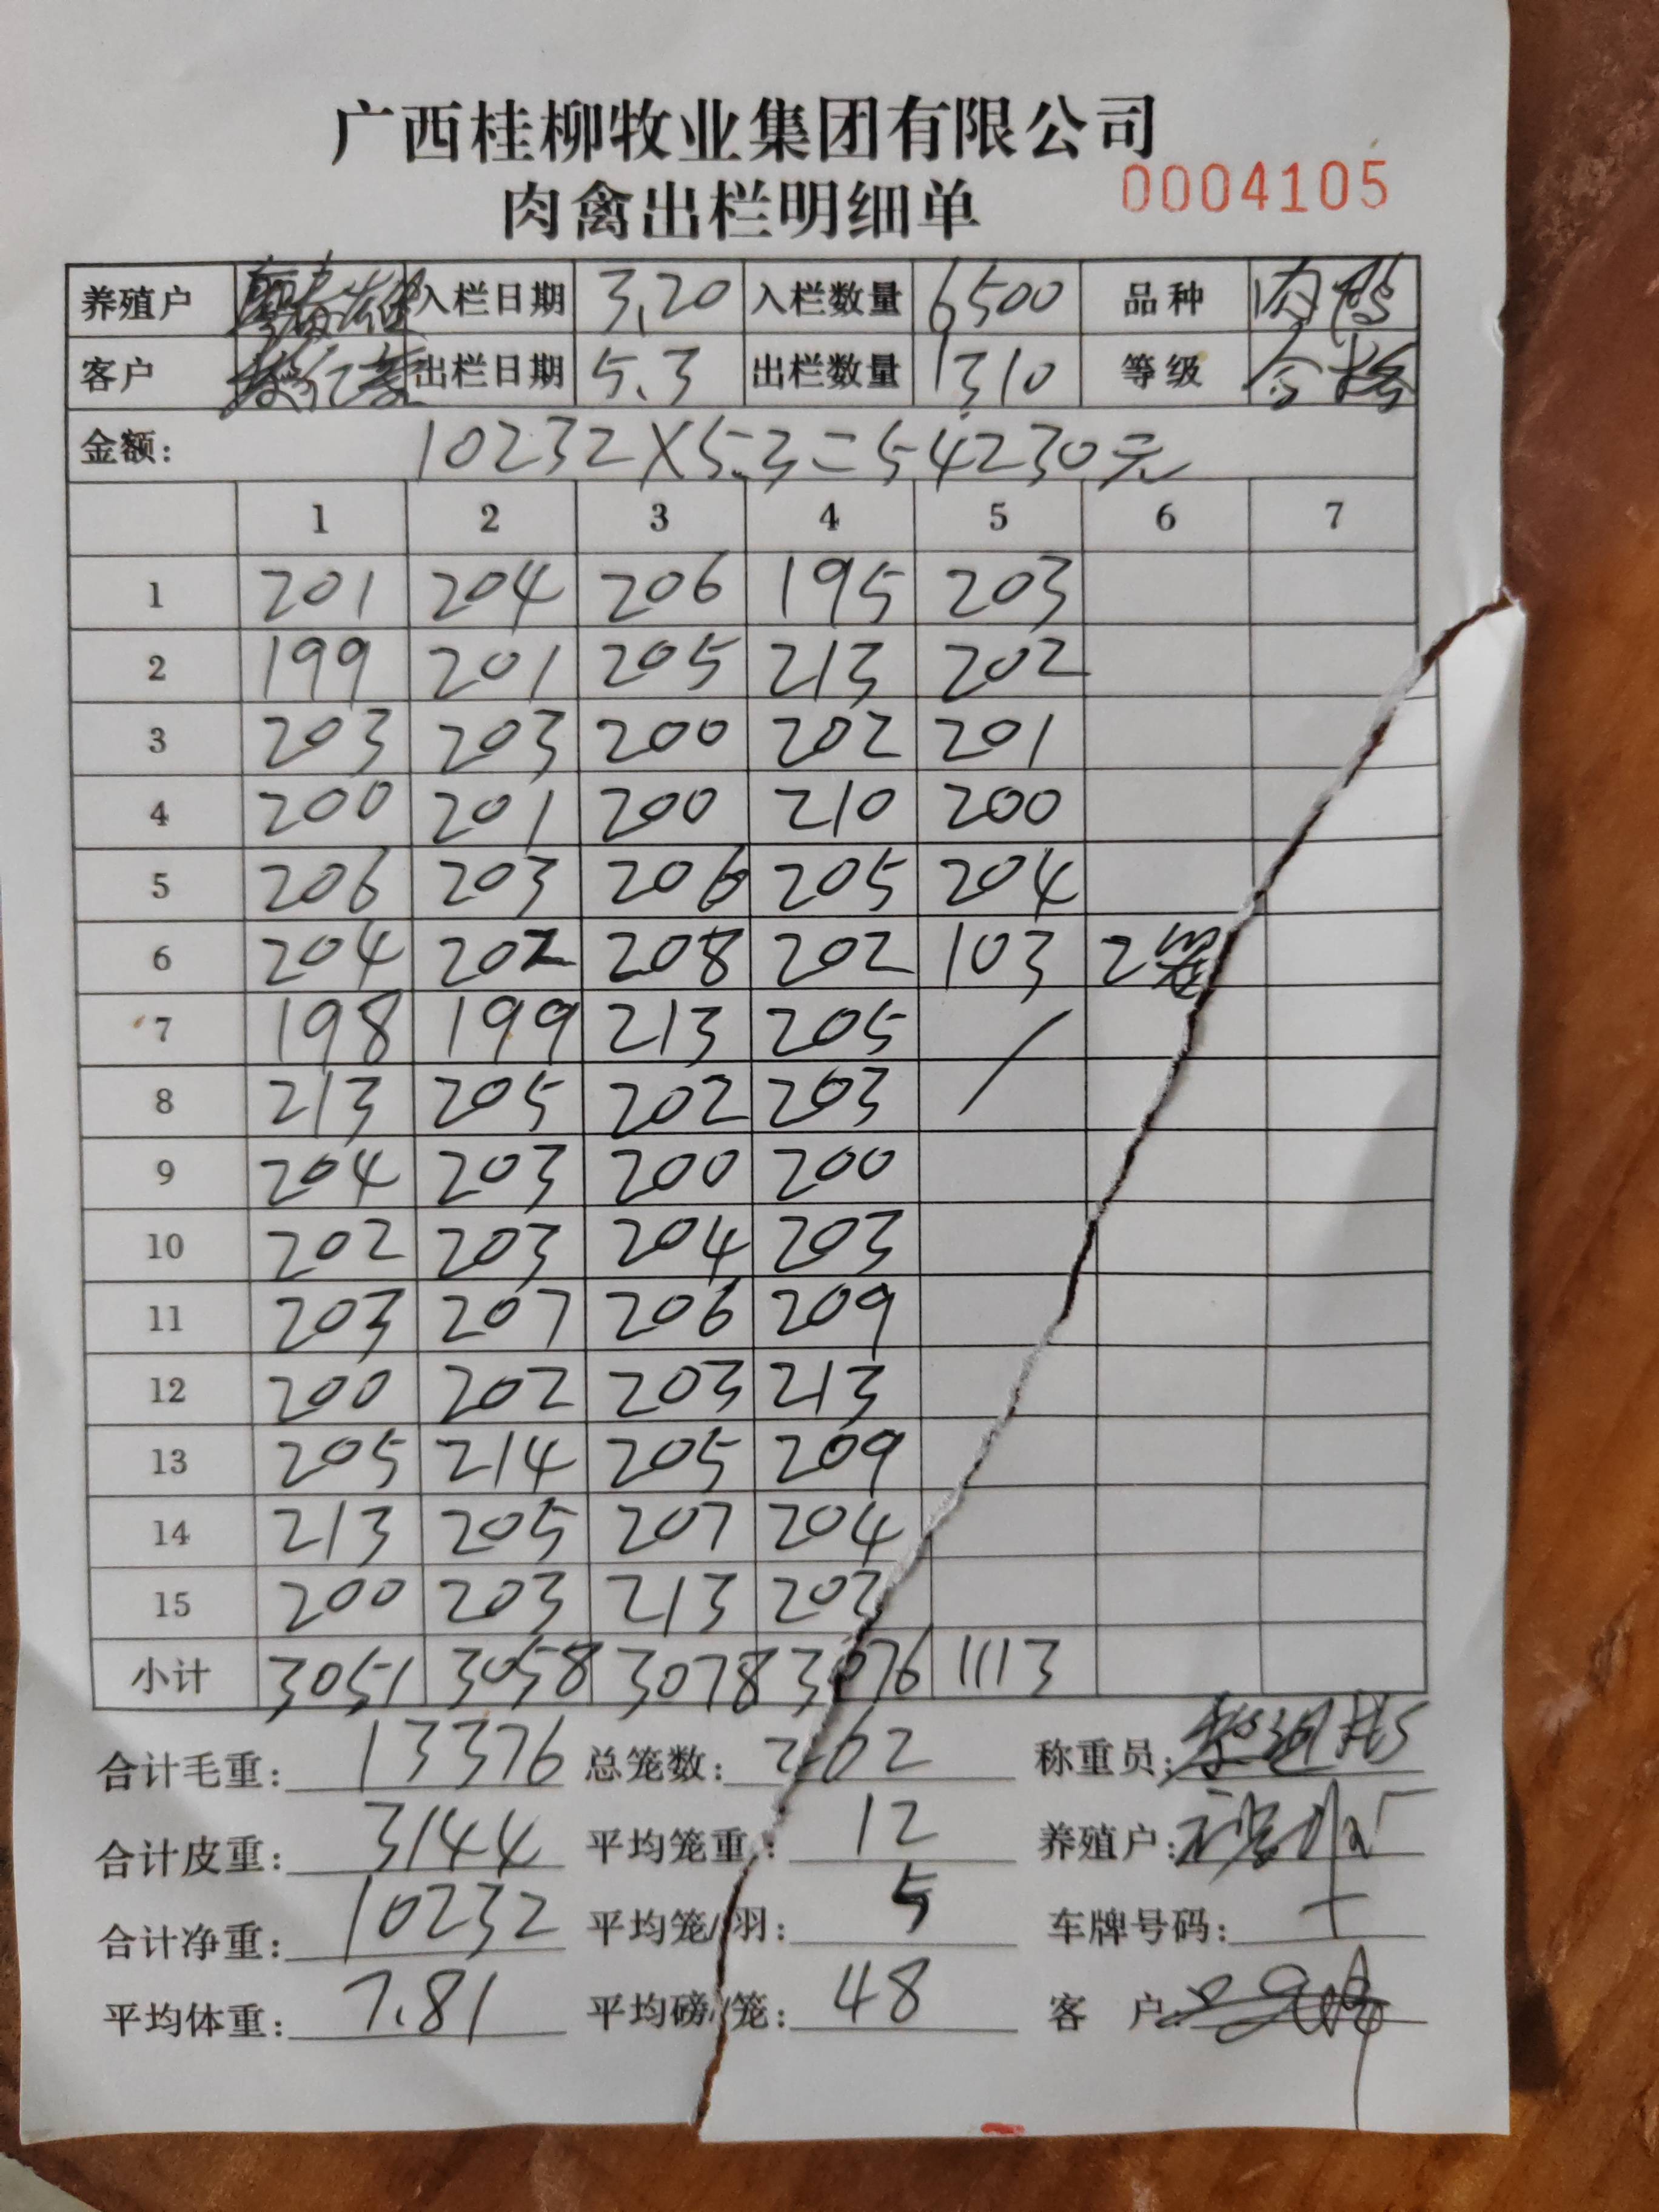 广西桂柳牧业集团有限公司
肉禽出栏明细单 0004105
养殖户 入栏日期 3.20 入栏数量 6500 品种 肉鸭
客户 出栏日期 5.3 出栏数量 1310 等级 合格
金额: 10232×5.3=54230元
1 2 3 4 5 6 7
1 201 204 206 195 203
2 199 201 205 213 202
3 203 203 200 202 201
4 200 201 200 210 200
5 206 203 206 205 204
6 204 202 208 202 103 2笼
7 198 199 213 205 /
8 213 205 202 203
9 204 203 200 200
10 202 203 204 203
11 203 207 206 209
12 200 202 203 213
13 205 214 205 209
14 213 205 207 204
15 200 203 213 203
小计 3051 3058 3078 3076 1113
合计毛重: 13376 总笼数: 262 称重员:
合计皮重: 3144 平均笼重: 12 养殖户:
合计净重: 10232 平均笼/羽: 5 车牌号码:
平均体重: 7.81 平均磅/笼: 48 客户: